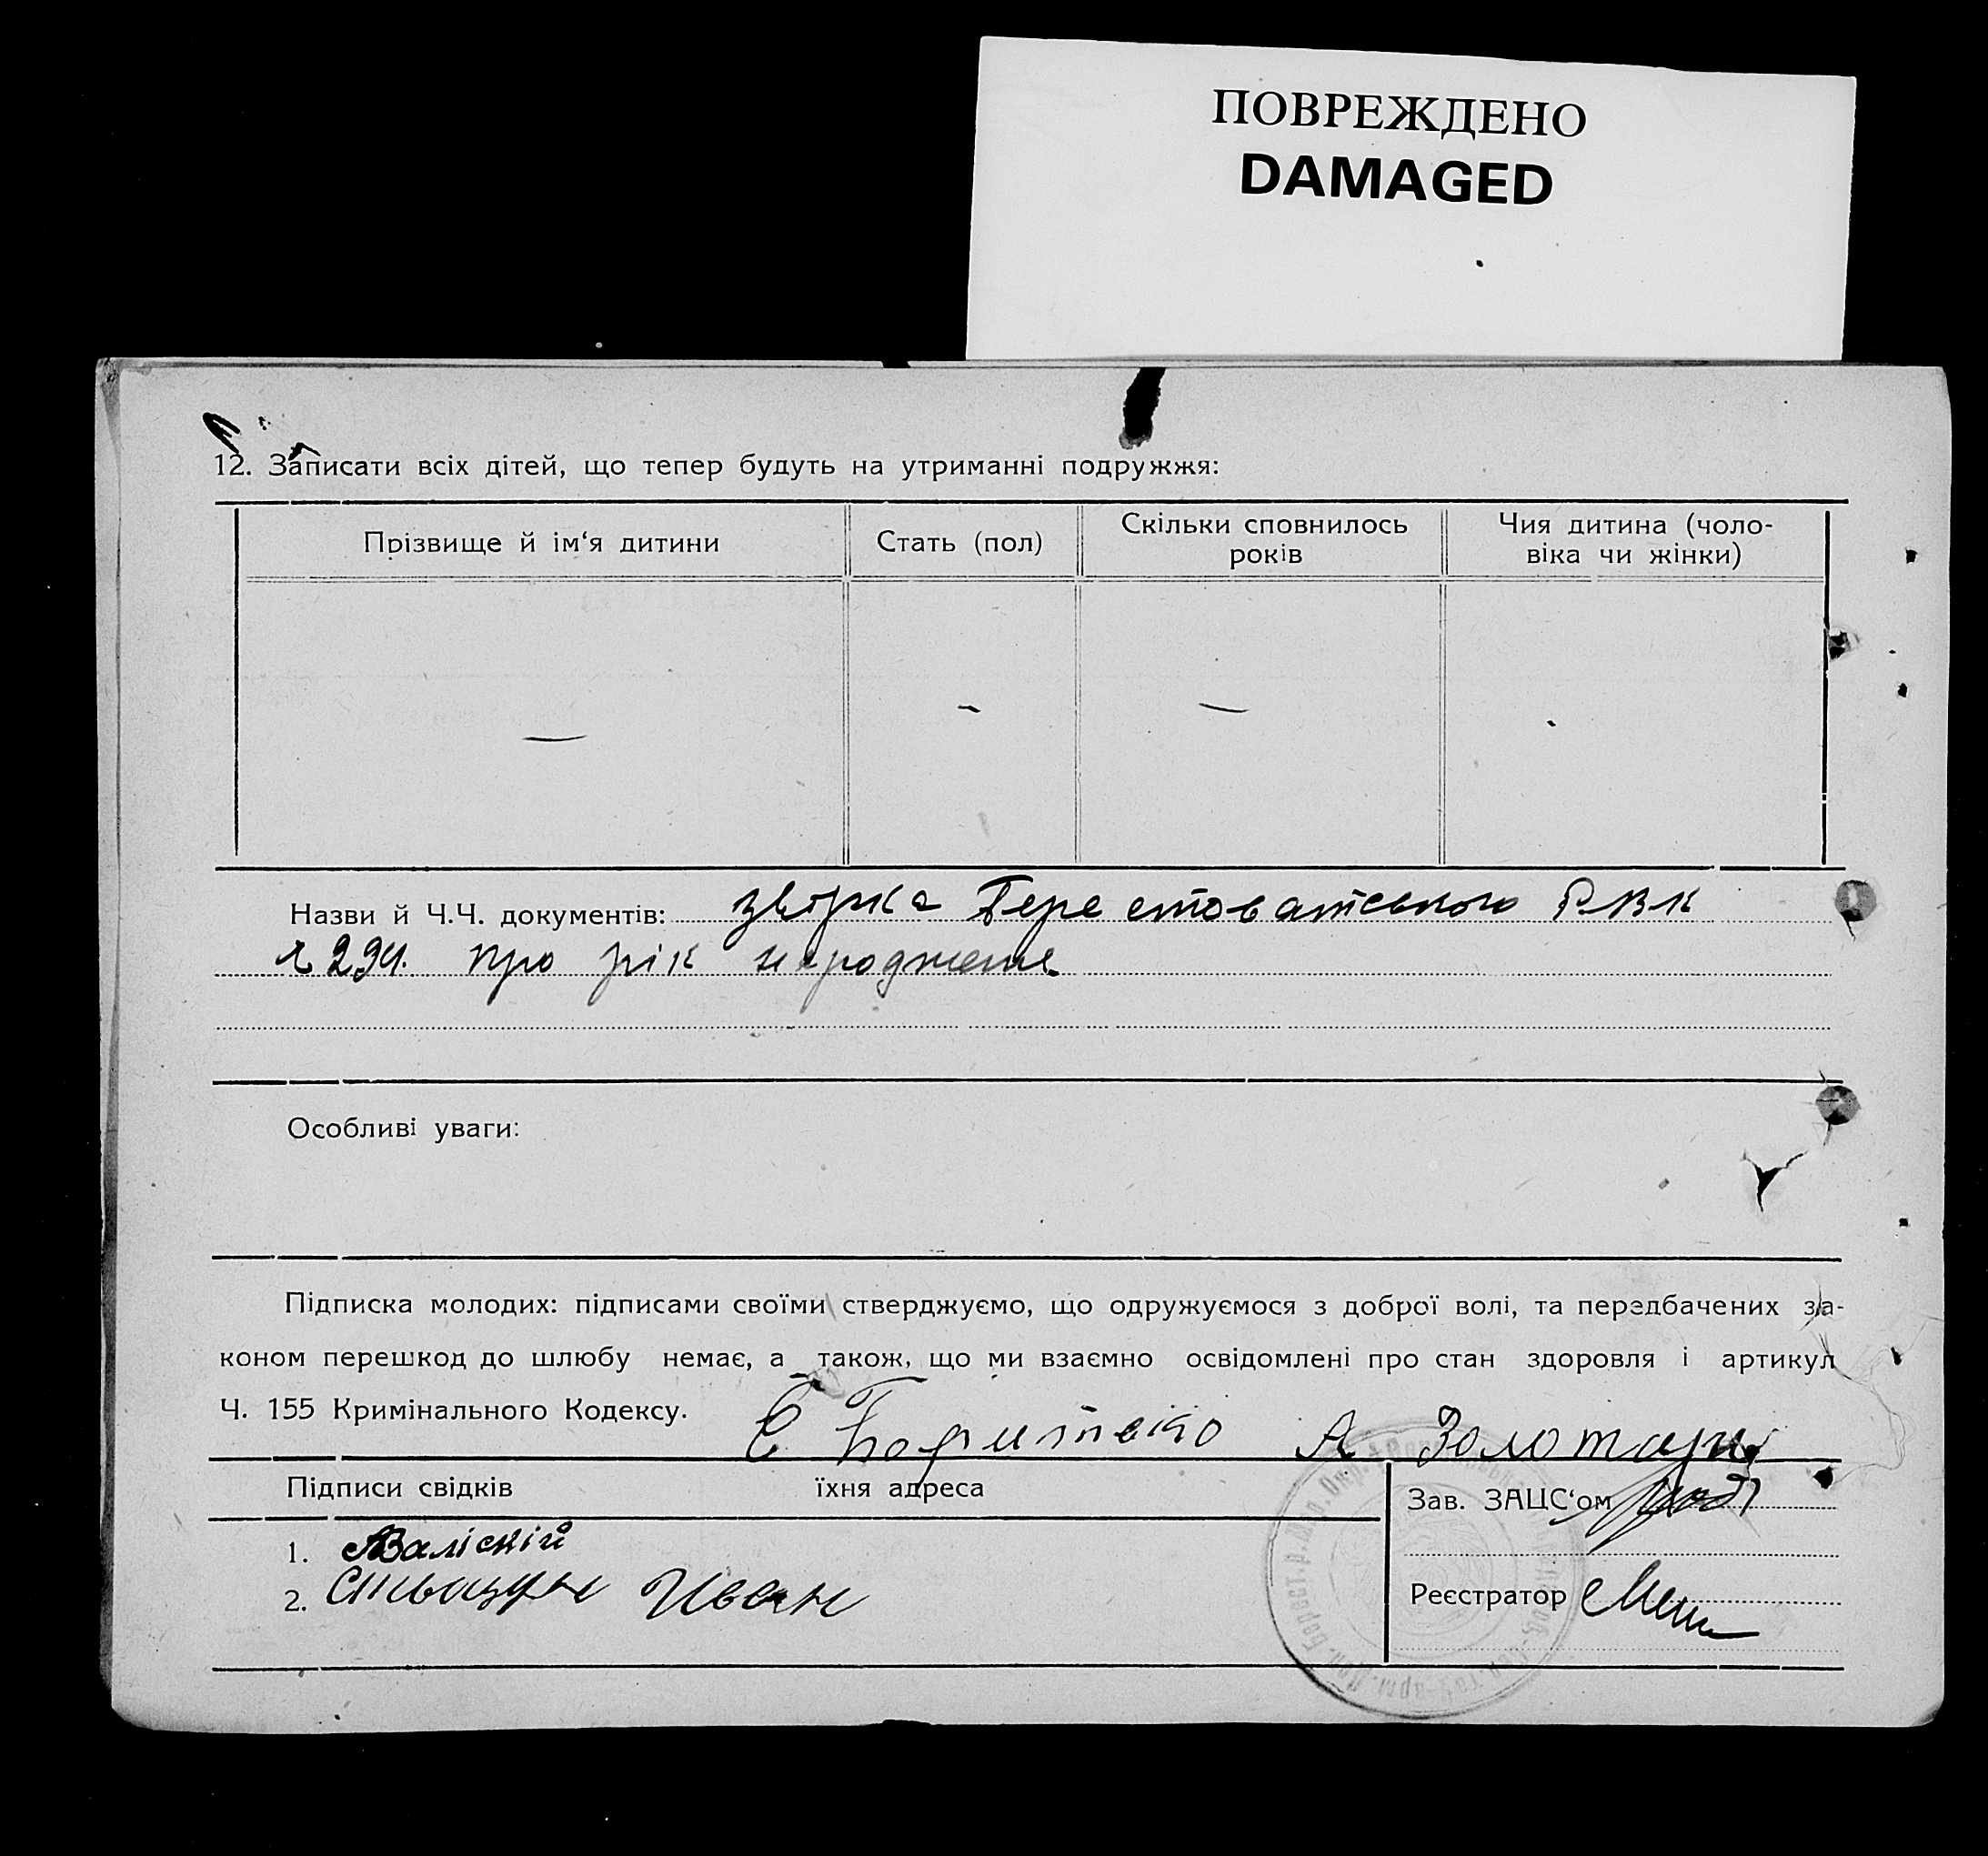 ПОВРЕЖДЕНО
DAMAGED
12. Записати всіх дітей, що тепер будуть на утриманні подружжя:
Прізвище й ім‘я дитини
Стать (пол)
Скільки сповнилось
років
Чия дитина (чоло-
віка чи жінки)
Назви й Ч.Ч. документів: Берестоватського РВК
294. про рік народження
Особливі уваги:
Підписка молодих: підписами своїми стверджуємо, що одружуємося з доброї волі, та передбачених за-
коном перешкод до шлюбу немає, а також, що ми взаємно освідомлені про стан здоровля і артикул
Ч. 155 Кримінального Кодексу.
А Золотарь
Підписи свідків
їхня адреса
Зав. ЗАЦС‘ом
1.
2. Иван
Реєстратор